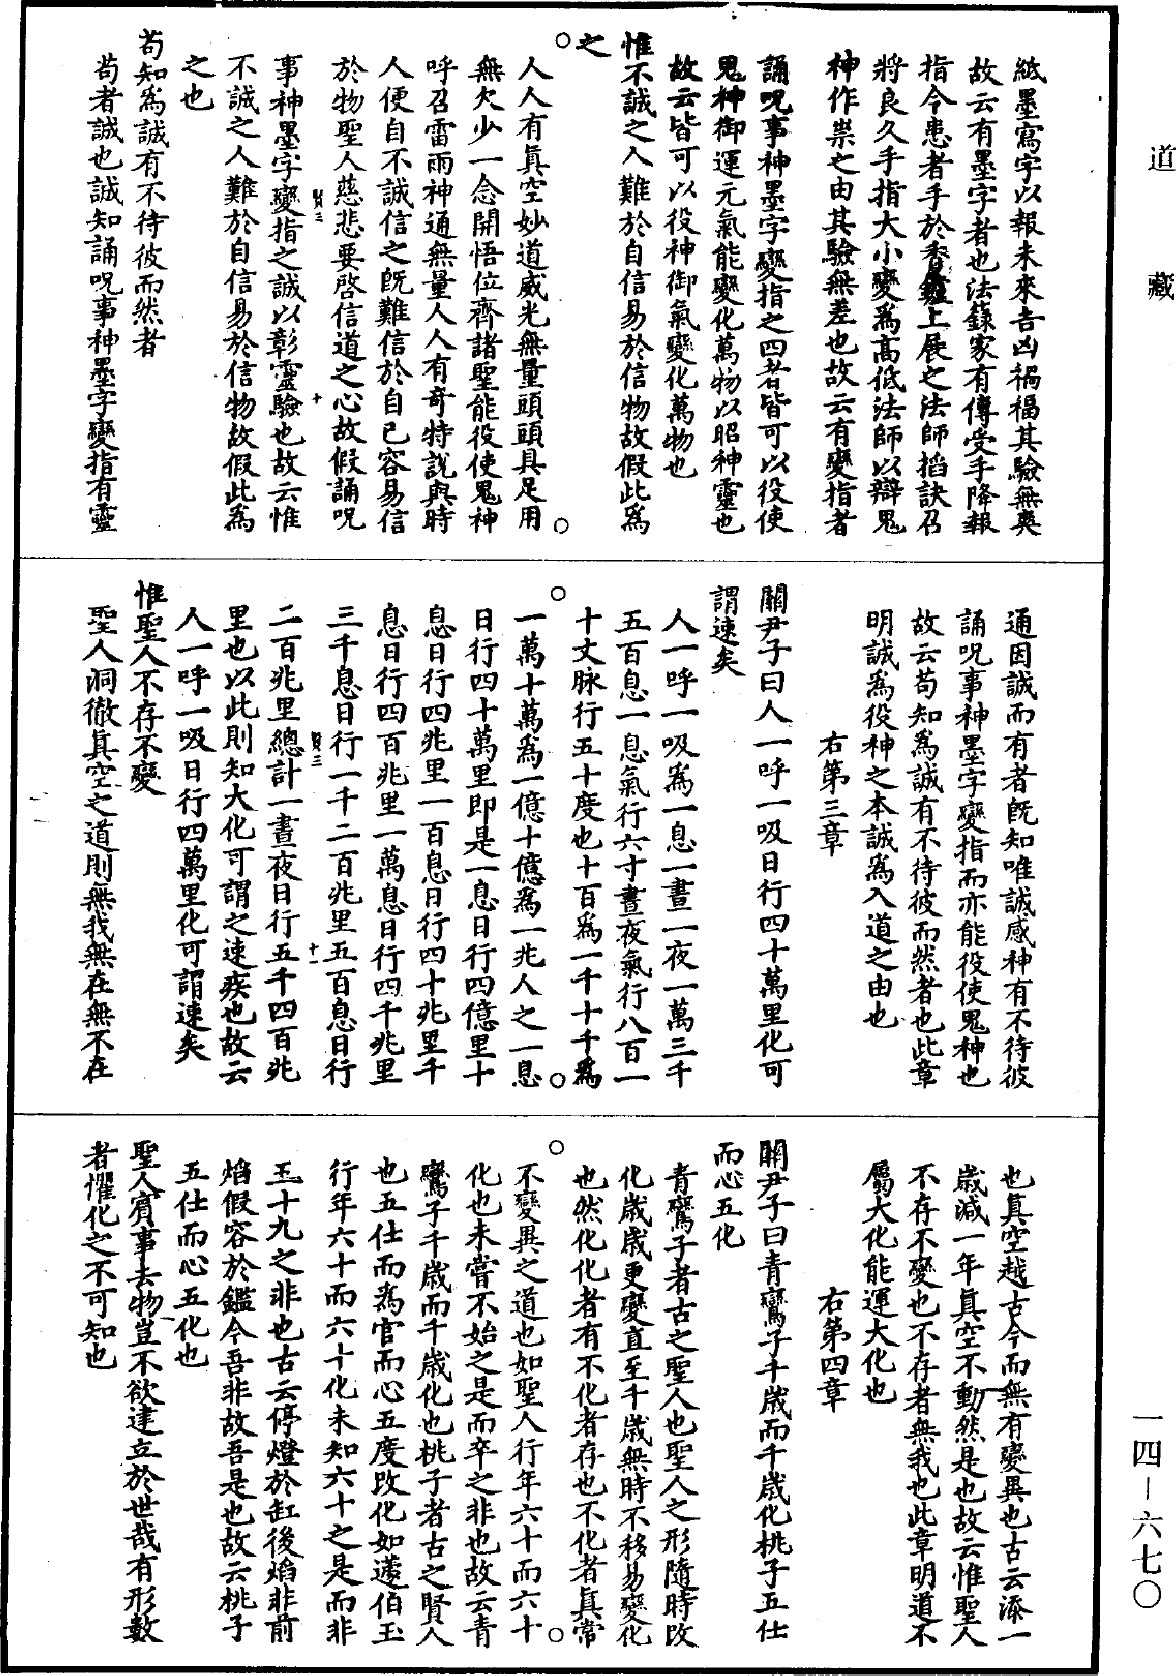 道藏
紙墨寫字以報未來吉凶禍福其驗無爽
故云有墨字者也法籙家有傳受手降報
指令患者手於香爐上展之法師搯訣召
將良久手指大小變為高低法師以辯鬼
神作祟之由其驗無差也故云有變指者
誦呪事神墨字變指之四者皆可以役使
鬼神御運元氣能變化萬物以昭神靈也
故云皆可以役神御氣變化萬物也
惟不誠之人難於自信易於信物故假此為
之
○
○
人人有真空妙道威光無量頭頭具足用
無欠少一念開悟位齊諸聖能役使鬼神
呼召雷雨神通無量人人有奇特說與時
人便自不誠信之既難信於自已容易信
於物聖人慈悲要啓信道之心故假誦呪
賢三
十
事神墨字變指之誠以彰靈驗也故云惟
不誠之人難於自信易於信物故假此為
之也
苟知為誠有不待彼而然者
苟者誠也誠知誦呪事神墨字變指有靈
通因誠而有者既知唯誠感神有不待彼
誦呪事神墨字變指而亦能役使鬼神也
故云苟知為誠有不待彼而然者也此章
明誠為役神之本誠為入道之由也
右第三章
關尹子曰人一呼一吸日行四十萬里化可
謂速矣
人一呼一吸為一息一晝一夜一萬三千
五百息一息氣行六寸晝夜氣行八百一
十丈脉行五十度也十百為一千十千為
○
○
一萬十萬為一億十億為一兆人之一息
日行四十萬里即是一息日行四億里十
息日行四兆里一百息日行四十兆里千
息日行四百兆里一萬息日行四千兆里
三千息日行一千二百兆里五百息日行
賢三
十一
二百兆里總計一晝夜日行五千四百兆
里也以此則知大化可謂之速疾也故云
人一呼一吸日行四萬里化可謂速矣
惟聖人不存不變
聖人洞徹真空之道則無我無在無不在
也真空越古今而無有變異也古云添一
歲減一年真空不動然是也故云惟聖人
不存不變也不存者無我也此章明道不
屬大化能運大化也
右第四章
關尹子曰青鸞子千歲而千歲化桃子五仕
而心五化
青鸞子者古之聖人也聖人之形隨時改
化歲歲更變直至千歲無時不移易變化
也然化化者有不化者存也不化者真常
○
○
不變異之道也如聖人行年六十而六十
化也未嘗不始之是而卒之非也故云青
鸞子千歲而千歲化也桃子者古之賢人
也五仕而為官而心五度改化如蘧伯玉
行年六十而六十化未知六十之是而非
五十九之非也古云停燈於缸後焰非前
焰假容於鑑今吾非故吾是也故云桃子
五仕而心五化也
聖人賓事去物豈不欲建立於世哉有形數
者懼化之不可知也
一四－六七〇